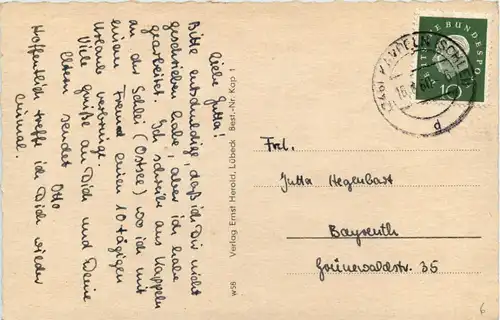 Liebe Jutta!
Bitte entschuldige daß ich Dir nicht
geschrieben habe, aber ich habe
gearbeitet. Ich schreibe aus Kappeln
an der Schlei (Ostsee) wo ich mit
einem Freund einen 10 tägigen
Urlaub verbringe.
Viele Grüße an Dich und Deine
Eltern sendet
Otto
Hoffentlich treffe ich Dich wieder
einmal.
W56 Verlag Ernst Herold, Lübeck Best.-Nr. Kap 1
DEUTSCHE BUNDESPOST
10
KAPPELN (SCHLEI)
d
Frl.
Jutta Hegenbart
Bayreuth
Grünewaldstr. 35
6